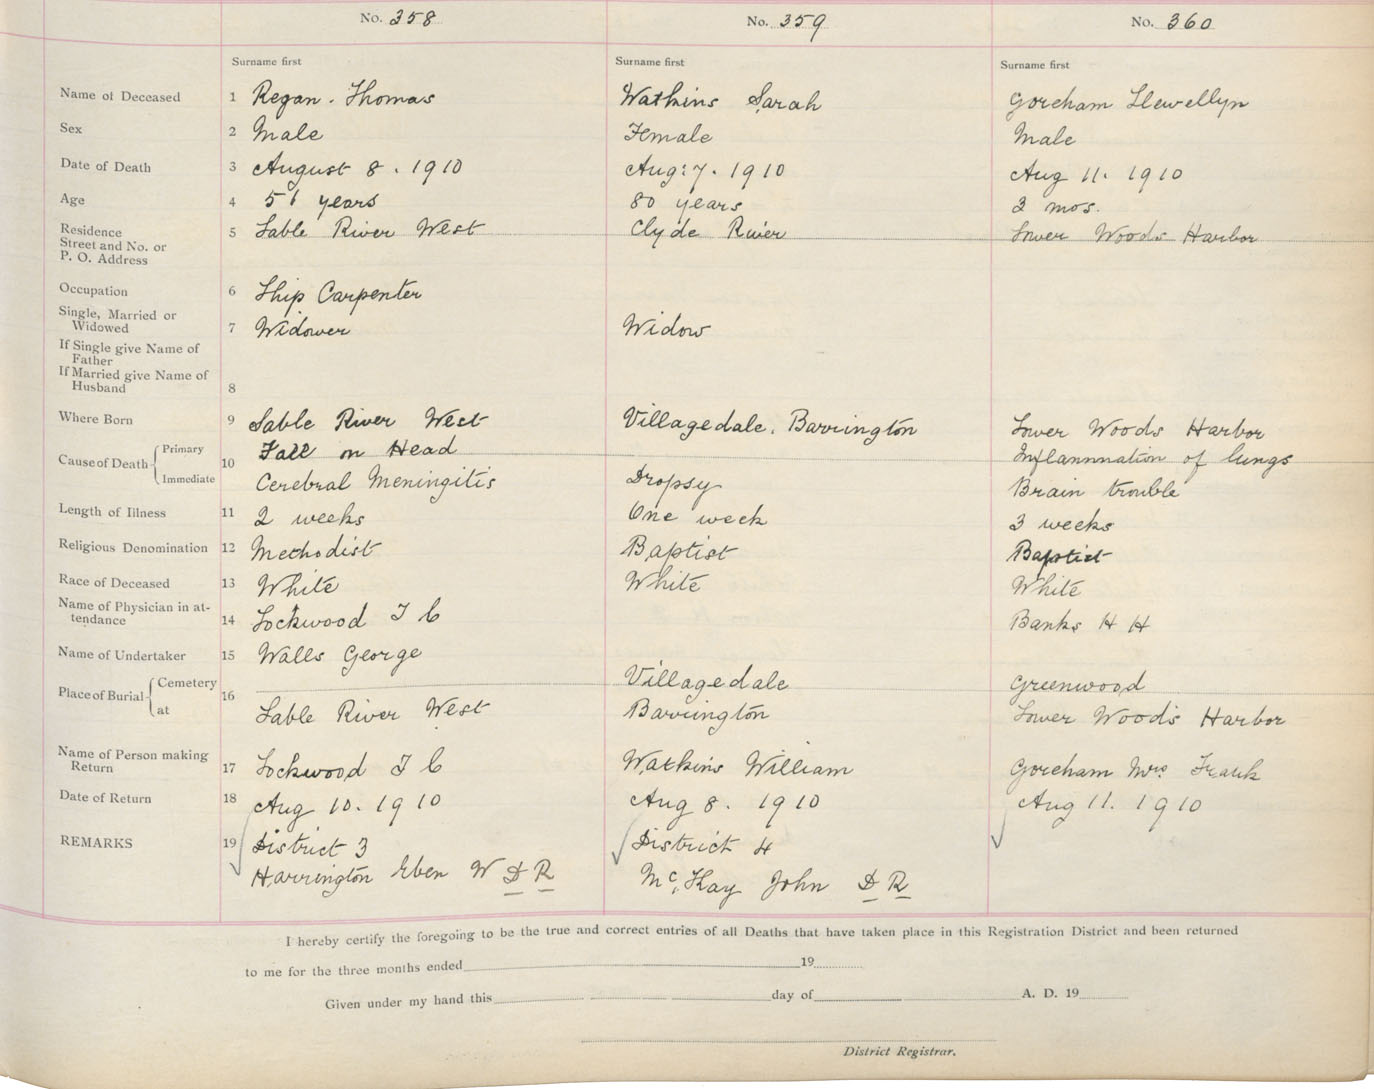 No. 358 No. 359 No. 360
Surname first Surname first Surname first
Name of Deceased 1 Regan. Thomas Watkins Sarah Goreham Llewellyn
Sex 2 Male Female Male
Date of Death 3 August 8. 1910 Aug: 7. 1910 Aug 11. 1910
Age 4 51 years 80 years 3 mos.
Residence 5 Sable River West Clyde River Lower Woods Harbor
Street and No. or
P. O. Address
Occupation 6 Ship Carpenter
Single, Married or
Widowed 7 Widower Widow
If Single give Name of
Father
If Married give Name of
Husband 8
Where Born 9 Sable River West Villagedale. Barrington Lower Woods Harbor
Cause of Death 10 Primary Fall on Head Inflammation of lungs
Immediate Cerebral Meningitis Dropsy Brain trouble
Length of Illness 11 2 weeks One week 3 weeks
Religious Denomination 12 Methodist Baptist Baptist
Race of Deceased 13 White White White
Name of Physician in at-
tendance 14 Lockwood T C Banks H H
Name of Undertaker 15 Walls George
Place of Burial 16 Cemetery Villagedale Greenwood
at Sable River West Barrington Lower Woods Harbor
Name of Person making
Return 17 Lockwood T C Watkins William Goreham Mrs Frank
Date of Return 18 Aug 10. 1910 Aug 8. 1910 Aug 11. 1910
REMARKS 19 District 3 District 4
Harrington Eben W D R McKay John D R
I hereby certify the foregoing to be the true and correct entries of all Deaths that have taken place in this Registration District and been returned
to me for the three months ended 19
Given under my hand this day of A. D. 19
District Registrar.